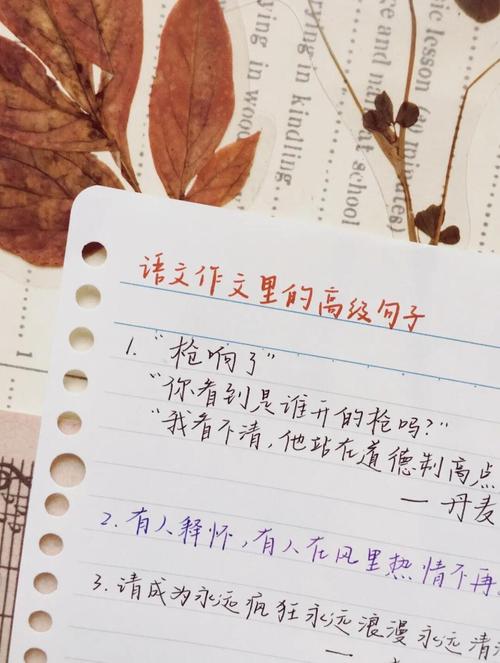 ic lesson (60 minutes)
e and nature
out at school
rying in
ying in kindling
ing in wood
1
语文作文里的高级句子
1. "枪响了"
"你看到是谁开的枪吗?"
"我看不清,他站在道德制高点
— 丹麦
2. 有人释怀,有人在风里热情不再
3. 请成为永远疯狂永远浪漫永远清